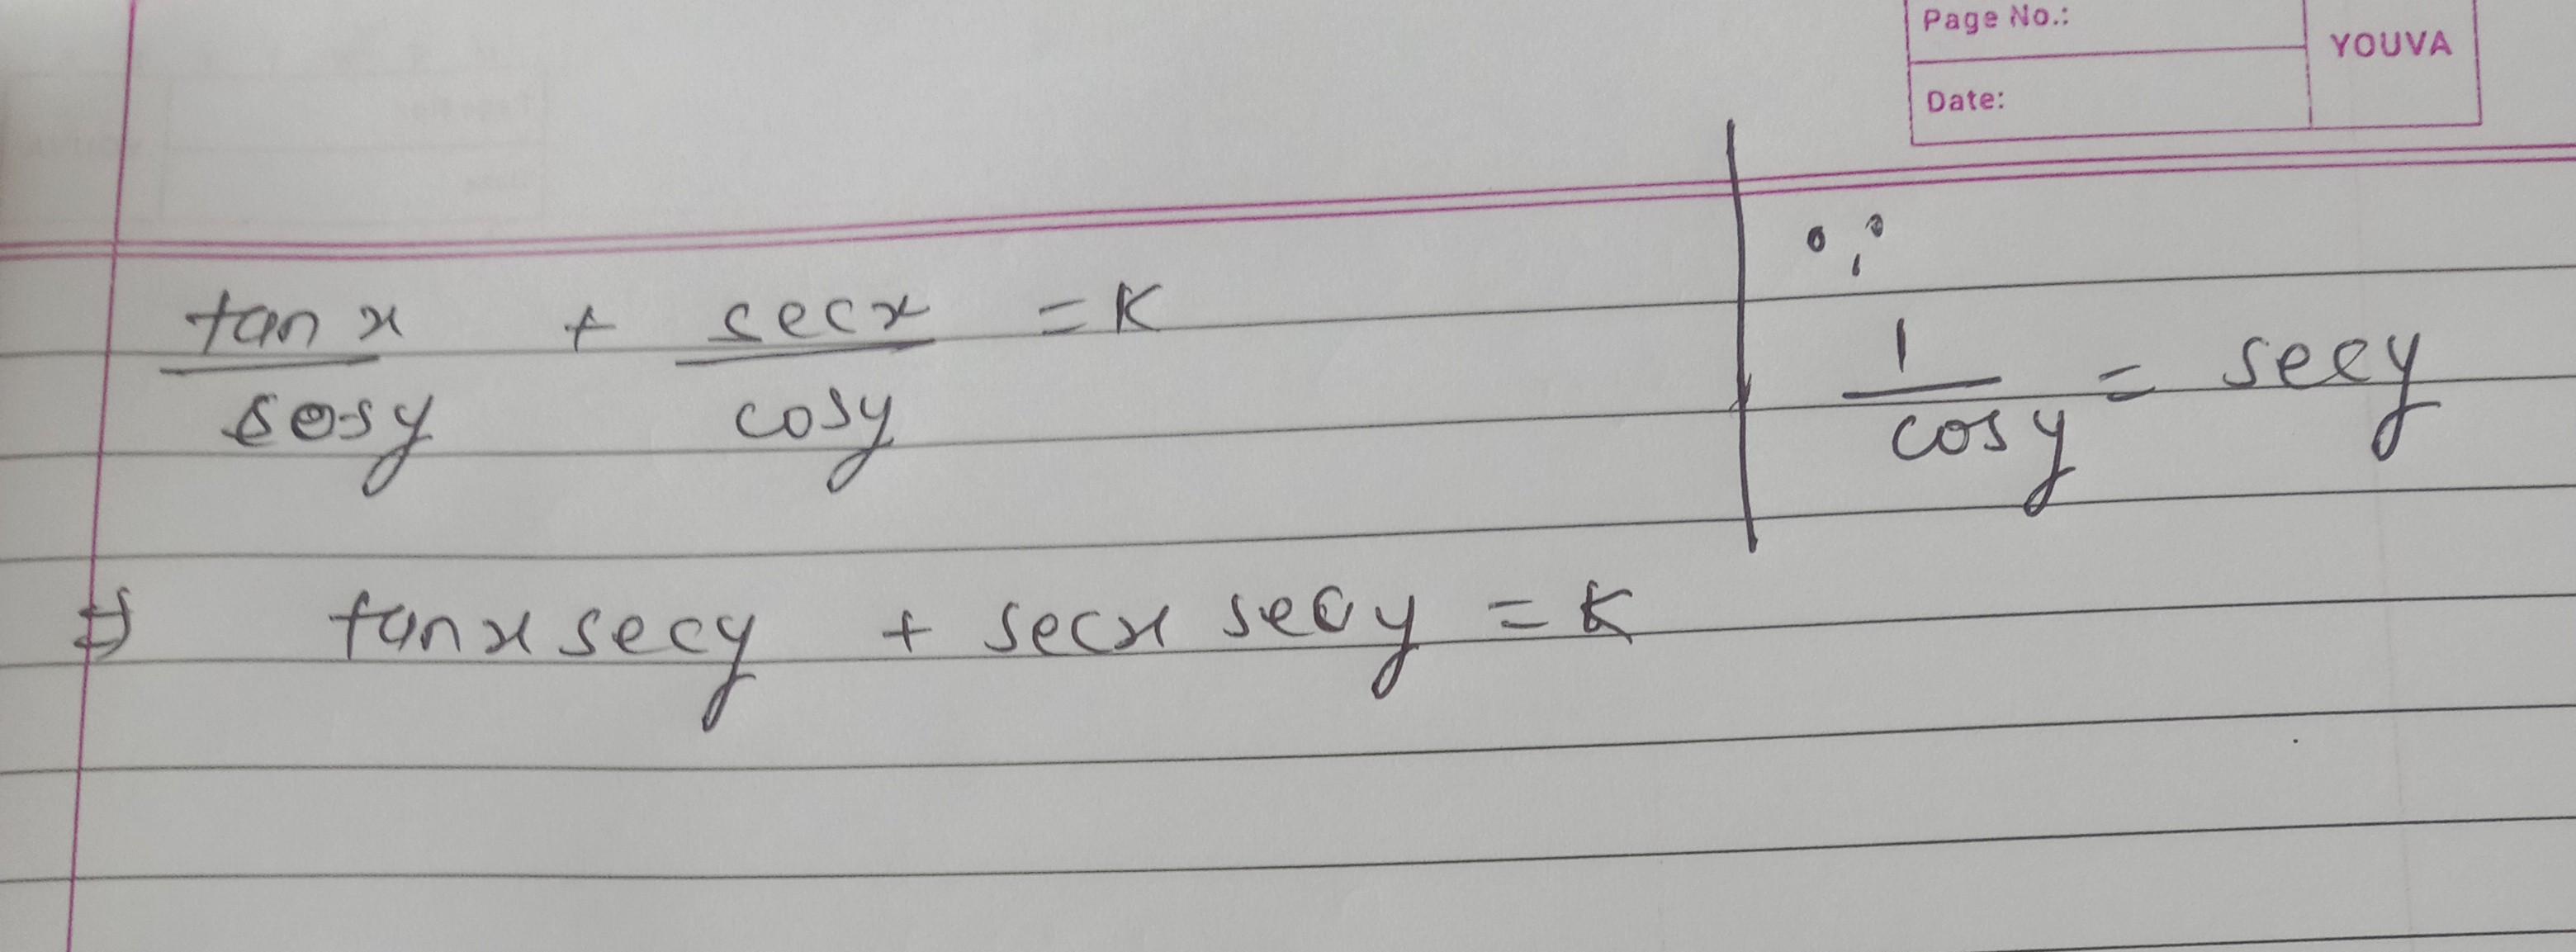 Page No.:
YOUVA
Date:
tan x / cosy + secx / cosy = K
∵
1 / cosy = secy
⇒ tanx secy + secx secy = K